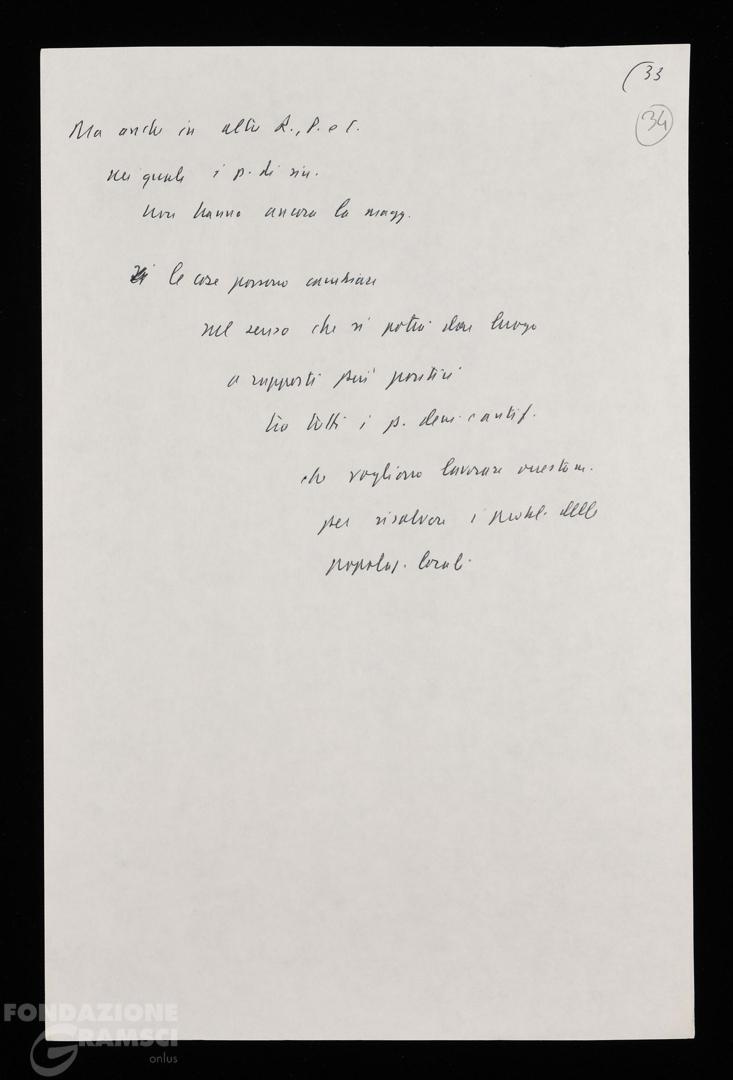 (33
34
Ma anche in altri R., P. e C.
nei quali i p. di sin.
non hanno ancora la magg.
le cose possono cambiare
nel senso che si potrà dare luogo
a rapporti più positivi
tra tutti i p. dem. e antif.
che vogliono lavorare onestam.
per risolvere i probl. delle
popolaz. locali.
FONDAZIONE
GRAMSCI
onlus